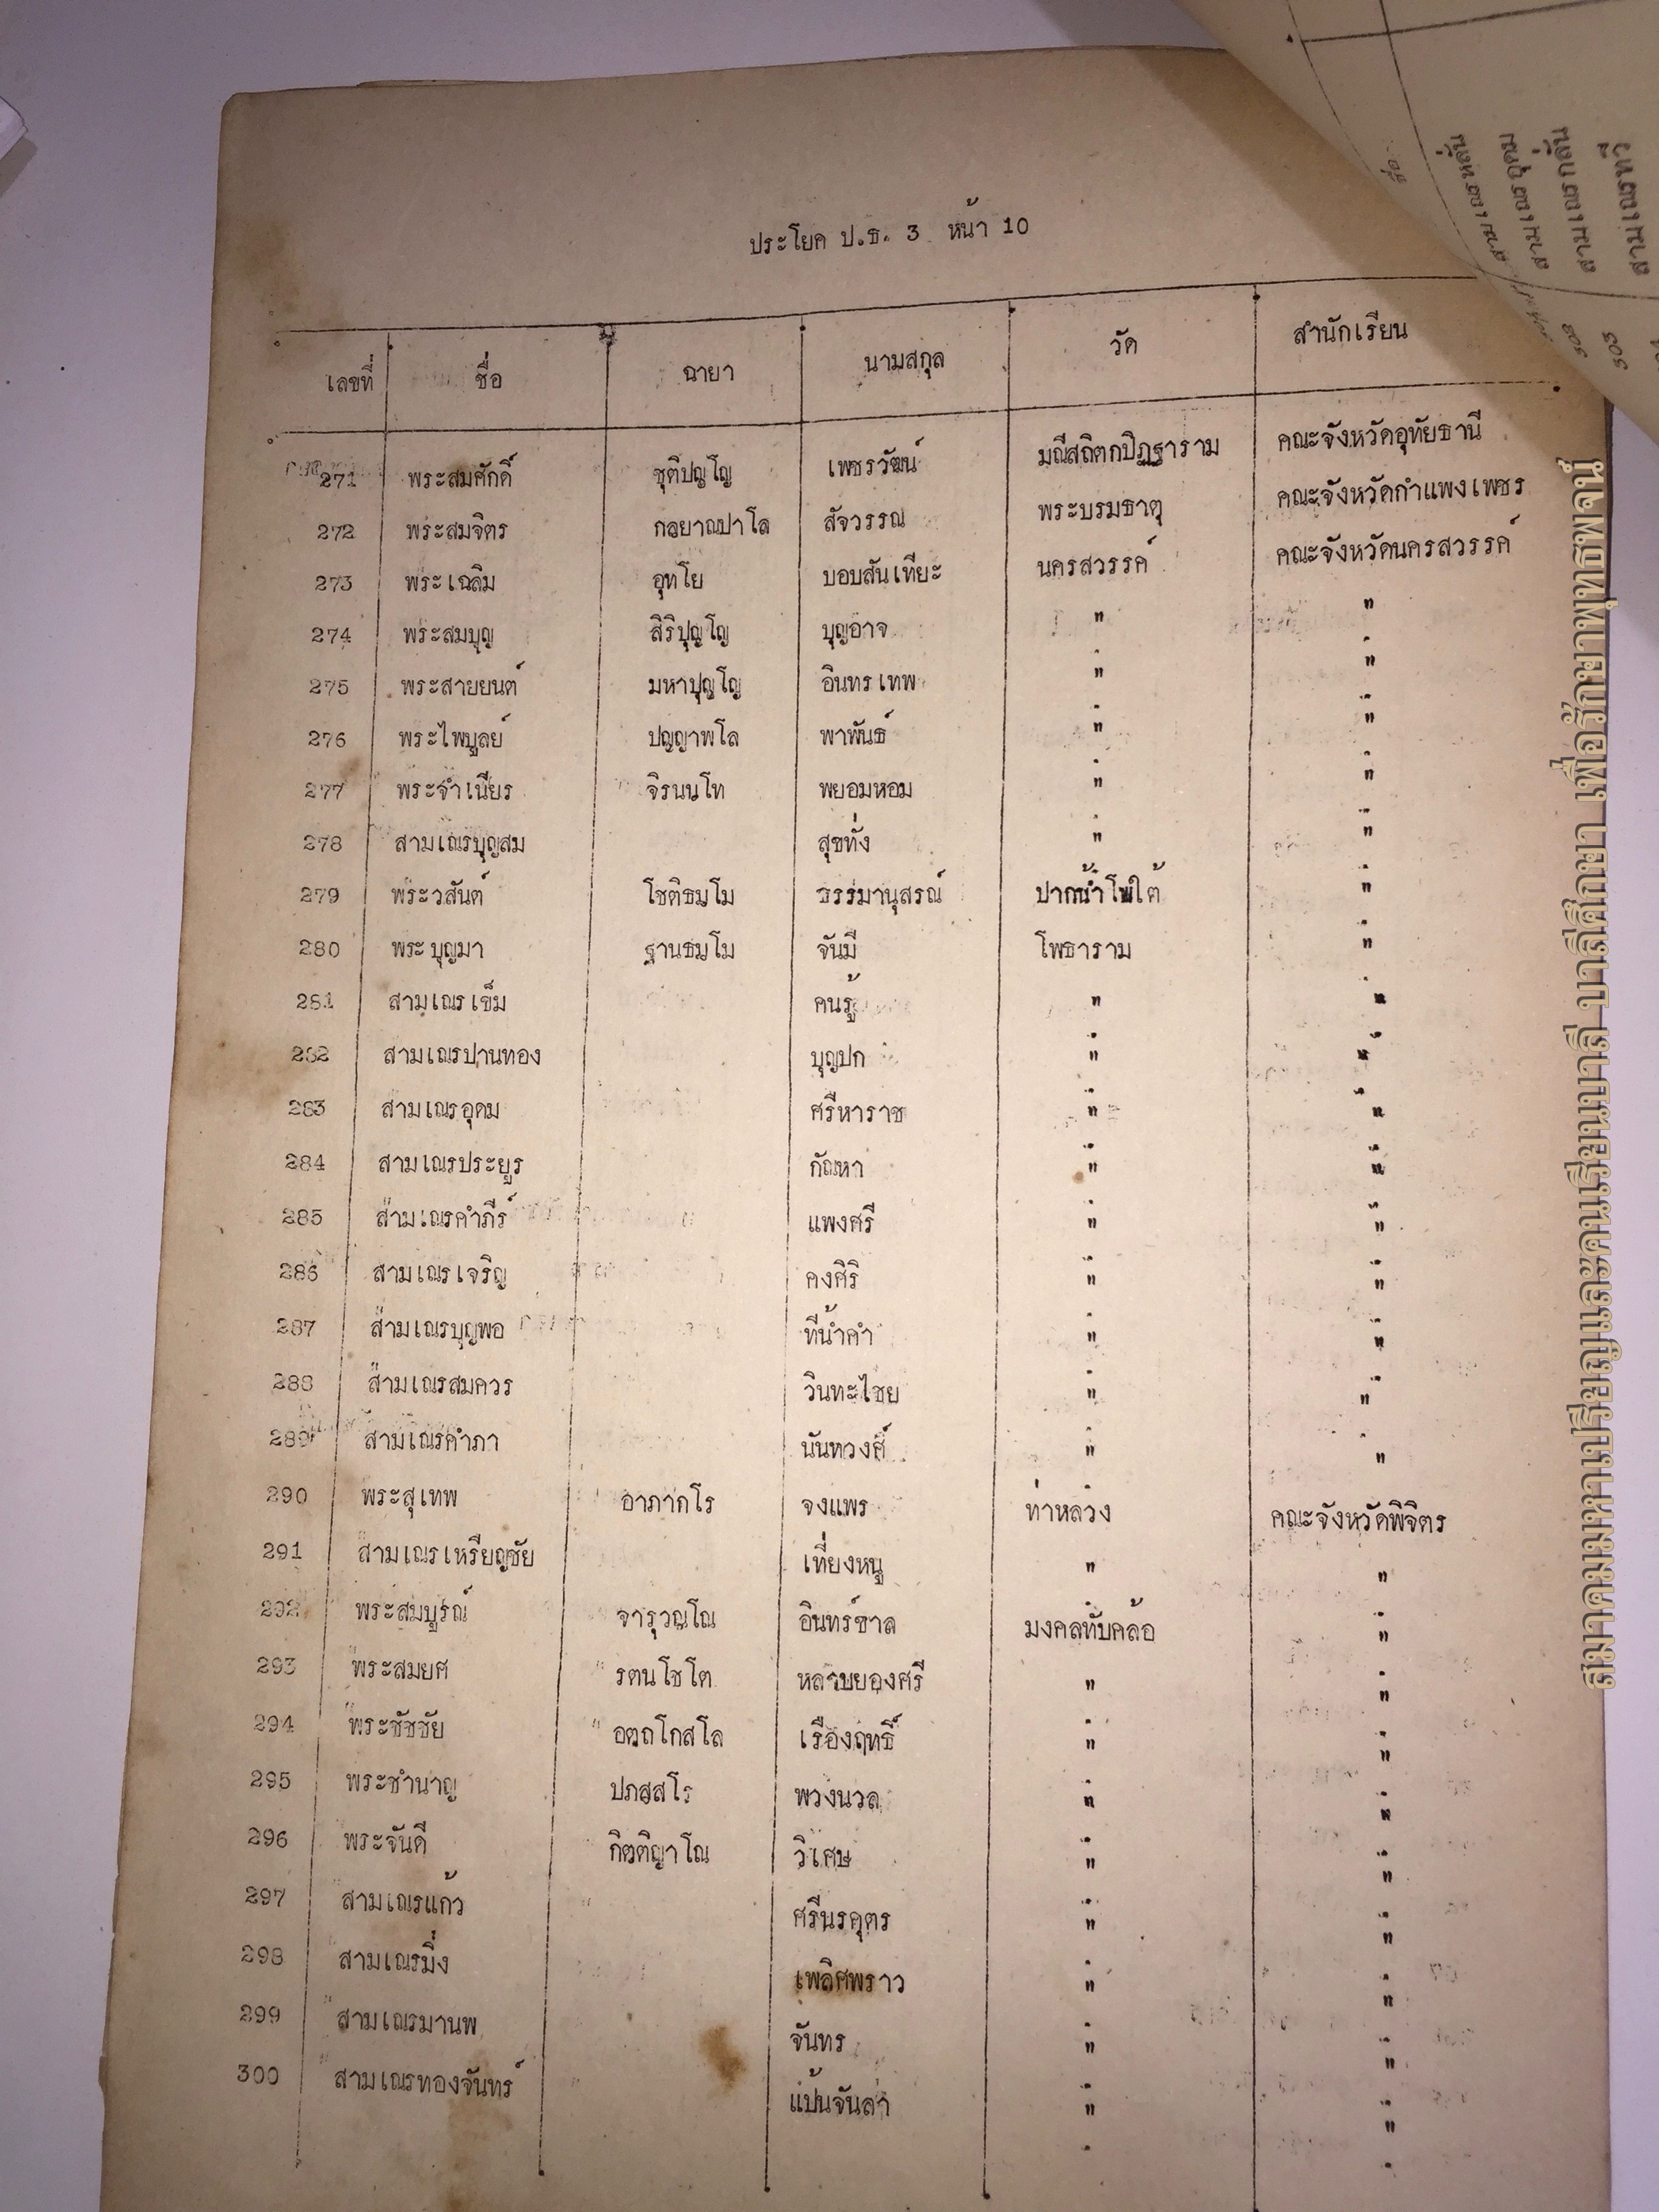 ประโยค ป.ธ. 3 หน้า 10
เลขที่ ชื่อ ฉายา นามสกุล วัด สำนักเรียน
271 พระสมศักดิ์ ชุติปญฺโญ เพชรวัฒน์ มณีสถิตกปิฏฐาราม คณะจังหวัดอุทัยธานี
272 พระสมจิตร กลฺยาณปาโล สัจวรรณ พระบรมธาตุ คณะจังหวัดกำแพงเพชร
273 พระเฉลิม อุทโย บอบสันเทียะ นครสวรรค์ คณะจังหวัดนครสวรรค์
274 พระสมบุญ สิริปุญฺโญ บุญอาจ " "
275 พระสายยนต์ มหาปุญฺโญ อินทรเทพ " "
276 พระไพบูลย์ ปญฺญาพโล พาพันธ์ " "
277 พระจำเนียร จิรนนฺโท พยอมหอม " "
278 สามเณรบุญสม สุขทั่ง " "
279 พระวสันต์ โชติธมฺโม ธรรมานุสรณ์ ปากน้ำโพใต้ "
280 พระบุญมา ฐานธมฺโม จันมี โพธาราม "
281 สามเณรเข็ม คนรู้ " "
282 สามเณรปานทอง บุญปก " "
283 สามเณรอุดม ศรีหาราช " "
284 สามเณรประยูร กัณหา " "
285 สามเณรคำภีร์ แพงศรี " "
286 สามเณรเจริญ คงศิริ " "
287 สามเณรบุญพอ ทีน้ำคำ " "
288 สามเณรสมควร วินทะไชย " "
289 สามเณรคำภา นันทวงศ์ " "
290 พระสุเทพ อาภากโร จงแพร ท่าหลวง คณะจังหวัดพิจิตร
291 สามเณรเหรียญชัย เที่ยงหนู " "
292 พระสมบูรณ์ จารุวณฺโณ อินทร์ชาล มงคลทับคล้อ "
293 พระสมยศ รตนโชโต หลาบยองศรี " "
294 พระชัชชัย อตฺถโกสโล เรืองฤทธิ์ " "
295 พระชำนาญ ปภสฺสโร พวงนวล " "
296 พระจันดี กิตฺติญาโณ วิเศษ " "
297 สามเณรแก้ว ศรีนรคุตร " "
298 สามเณรมิ่ง เพลิศพราว " "
299 สามเณรมานพ จันทร " "
300 สามเณรทองจันทร์ แป้นจันลา " "
สมาคมมหาเปรียญและคนเรียนบาลี บาลีศึกษา เพื่อรักษาพุทธพจน์